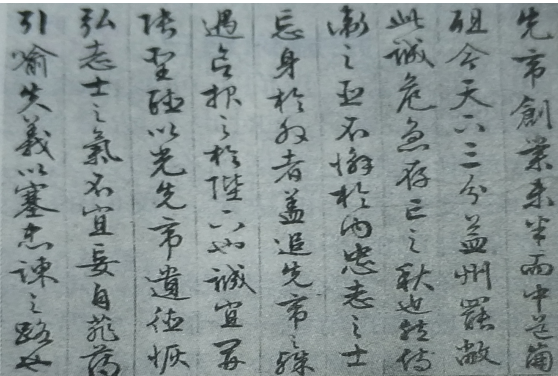 先帝創業未半而中道崩
殂今天下三分益州罷敝
此誠危急存亡之秋也然侍
衛之臣不懈於內忠志之士
忘身於外者蓋追先帝之殊
遇欲報之於陛下也誠宜開
張聖聽以光先帝遺德恢
弘志士之氣不宜妄自菲薄
引喻失義以塞忠諫之路也